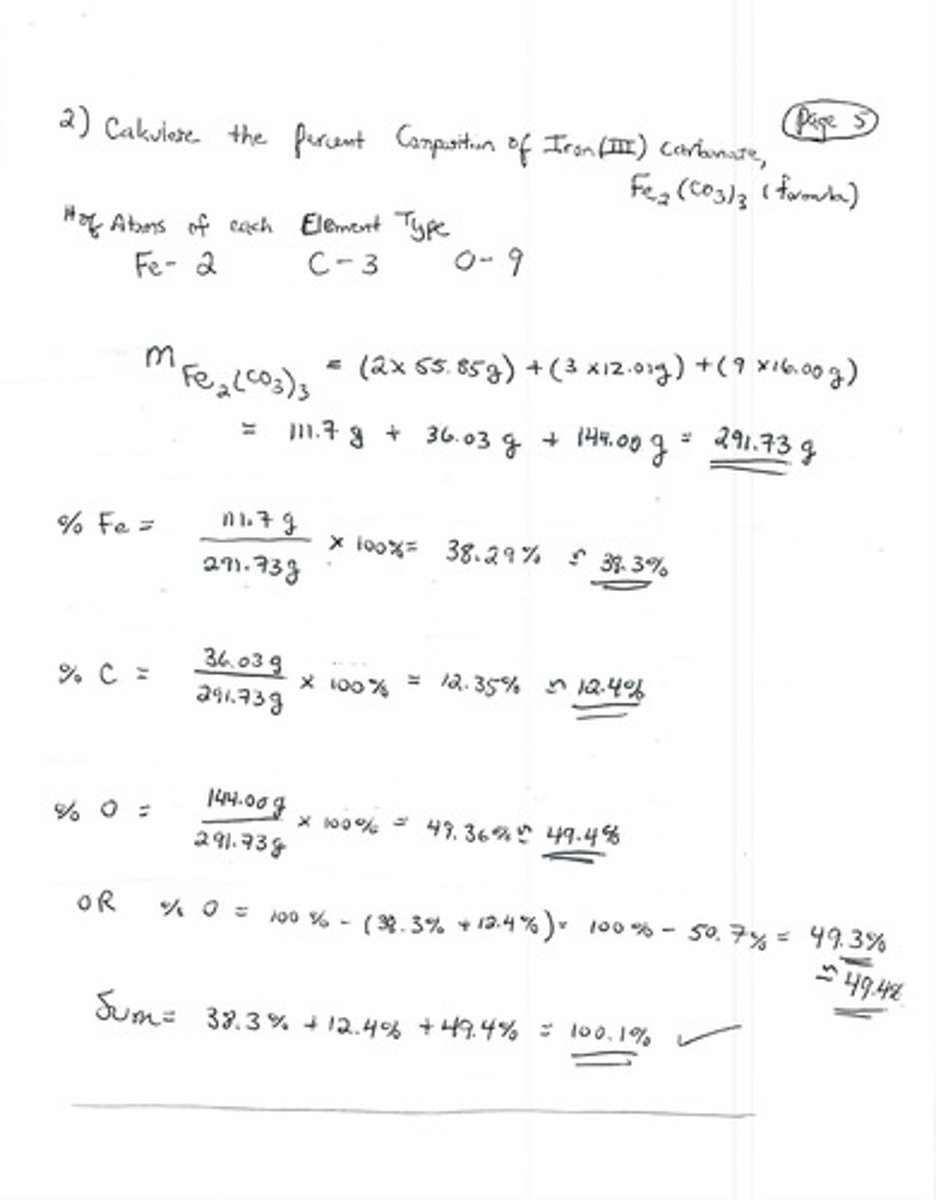 Page 5
2) Calculate the percent Composition of Iron (III) carbonate,
Fe₂(CO₃)₃ (formula)
# of Atoms of each Element Type
Fe- 2 C - 3 O- 9
m Fe₂(CO₃)₃ = (2x 55.85g) + (3 x12.01g) + (9 x16.00g)
= 111.7 g + 36.03 g + 144.00 g = 291.73 g
% Fe = 111.7 g / 291.73g x 100% = 38.29% ≃ 38.3%
% C = 36.03 g / 291.73g x 100% = 12.35% ≃ 12.4%
% O = 144.00g / 291.73g x 100% = 49.36% ≃ 49.4%
OR % O = 100 % - (38.3% + 12.4%) = 100 % - 50.7% = 49.3%
≃ 49.4%
Sum = 38.3% + 12.4% + 49.4% = 100.1% ✓